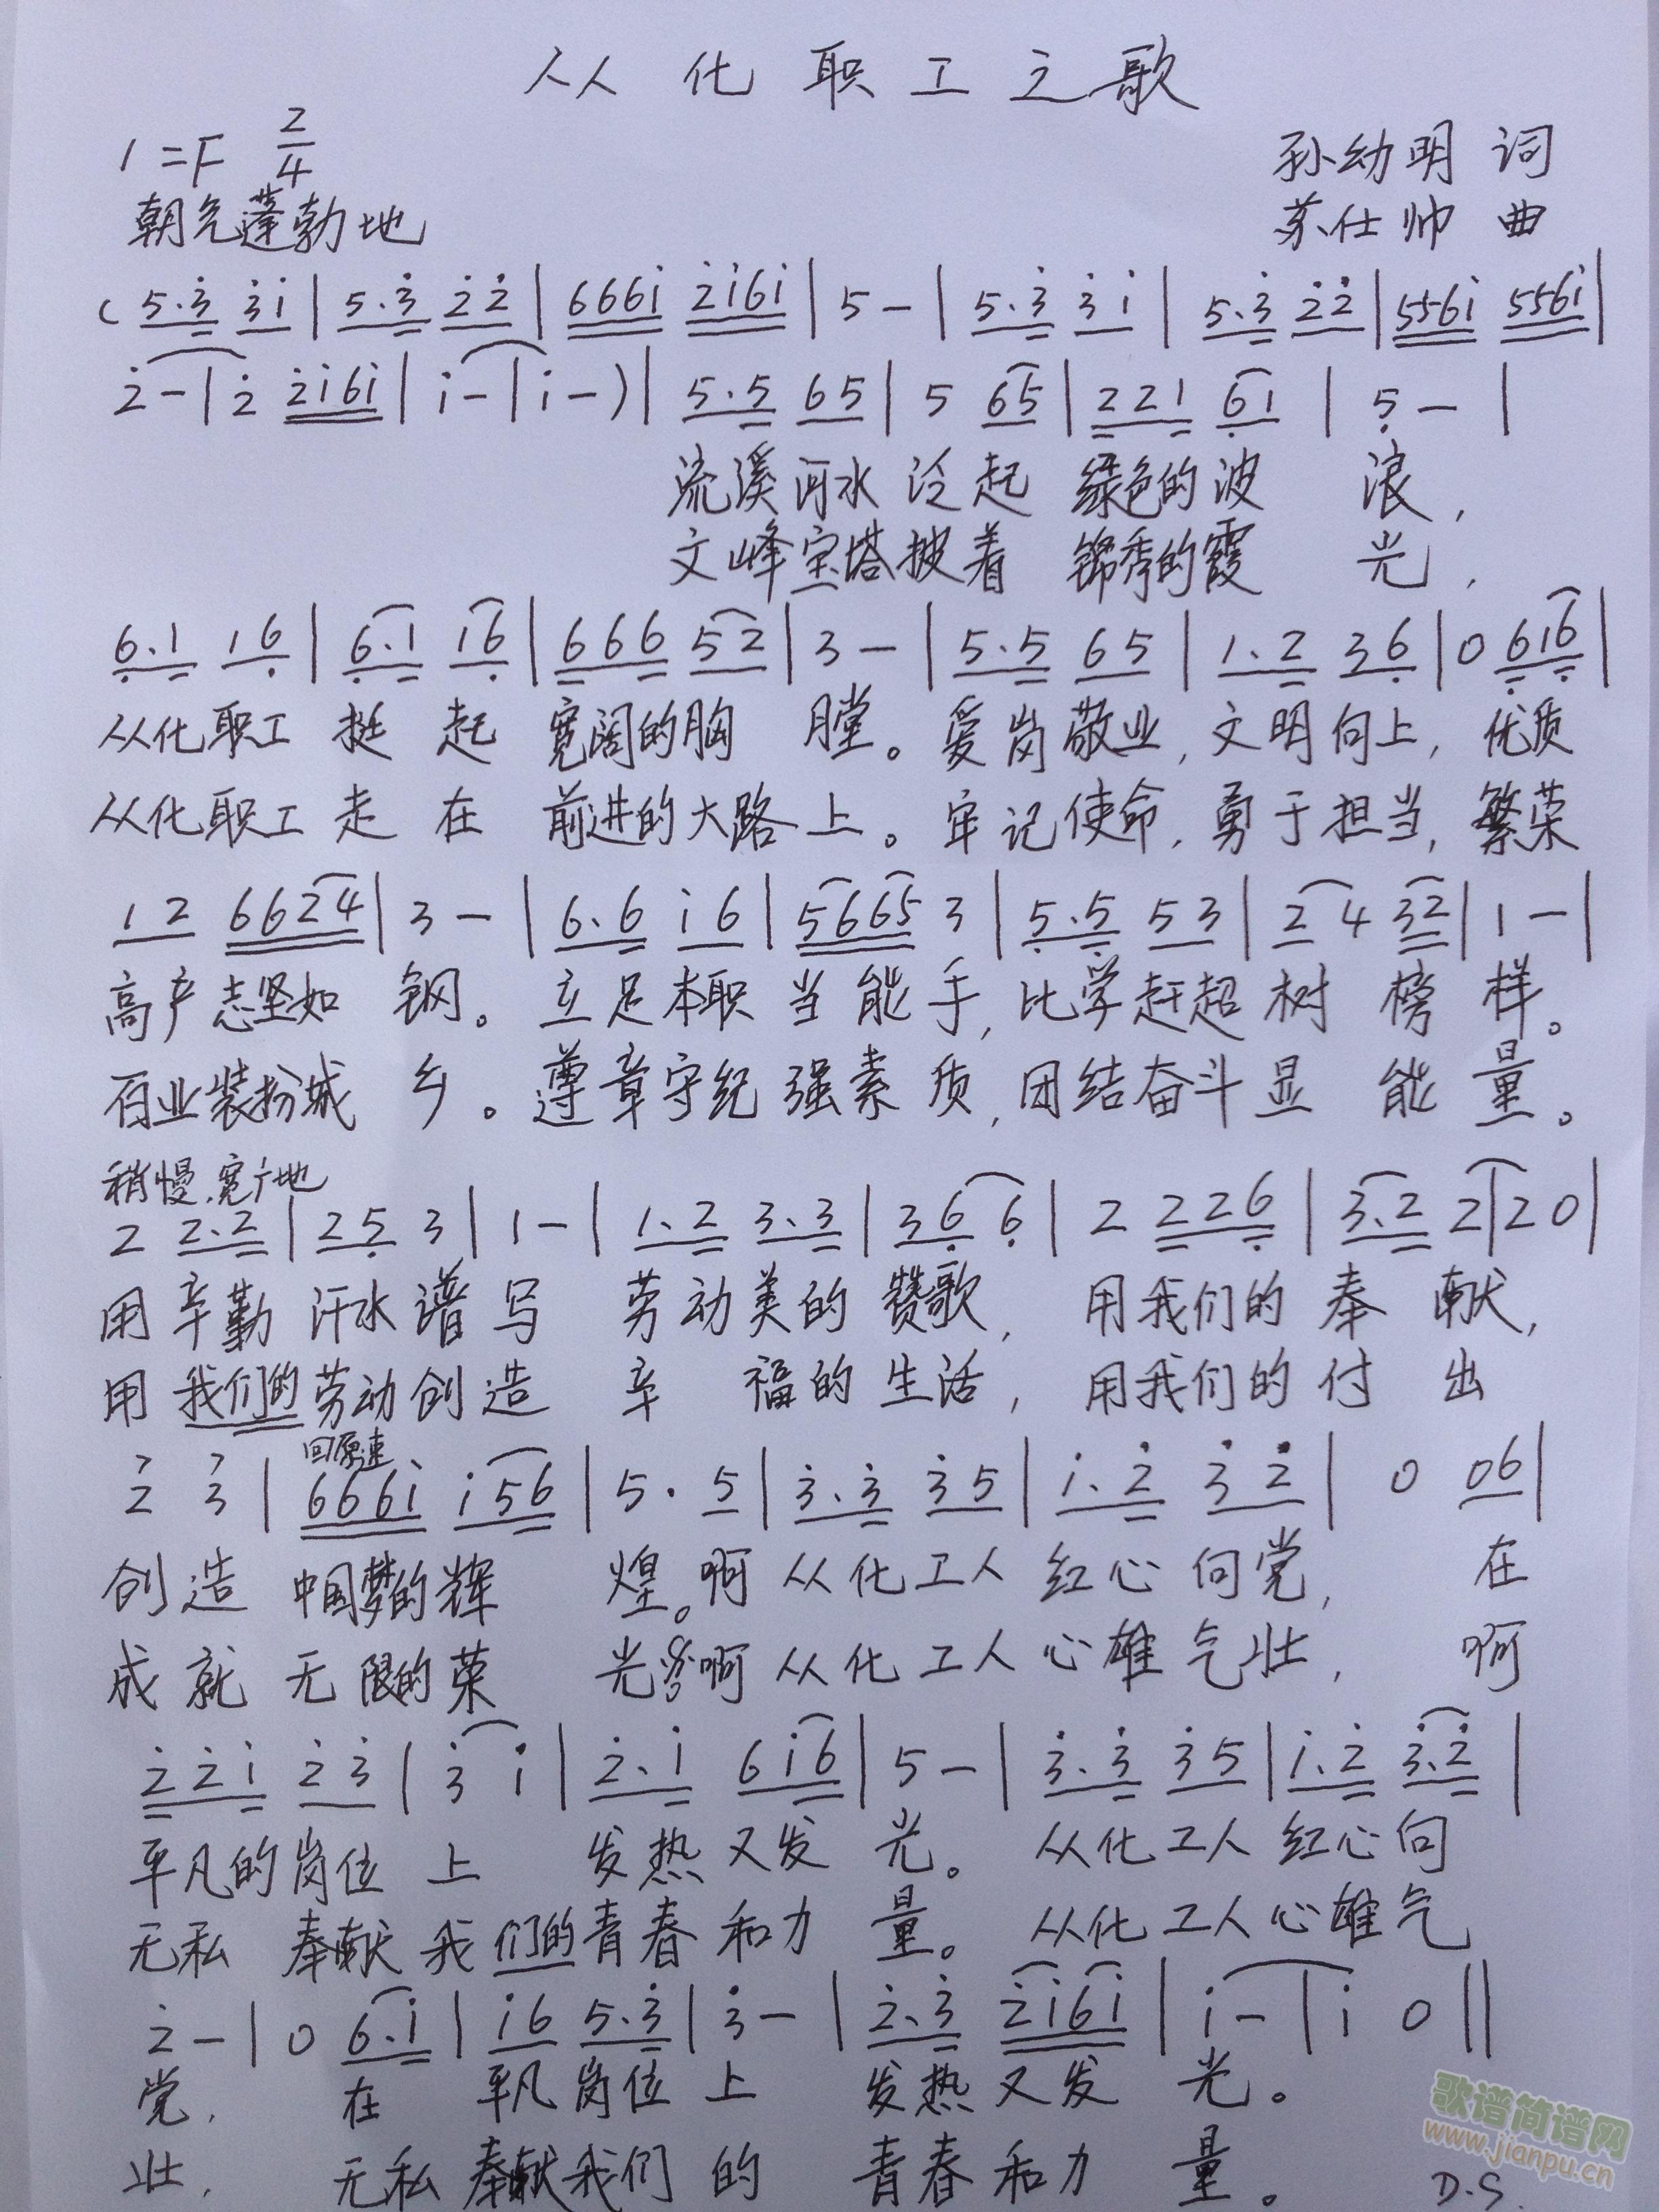 从化职工之歌
1=F 2/4
孙幼明 词
朝气蓬勃地
苏仕帅 曲
( 5·3̇ 3̇1̇ | 5·3̇ 2̇2̇ | 6661̇ 2̇1̇61̇ | 5 - | 5·3̇ 3̇1̇ | 5·3̇ 2̇2̇ | 5561̇ 5561̇ |
2̇ - | 2̇ 2̇1̇61̇ | 1̇ - | 1̇ - ) | 5·5 65 | 5 65 | 221 6̣1 | 5̣ - |
流溪河水泛起 绿色的波 浪,
文峰宝塔披着 锦秀的霞 光,
6̣·1 16̣ | 6̣·1 16̣ | 666 52 | 3 - | 5·5 65 | 1·2 36̣ | 0 6̣16̣ |
从化职工 挺 起 宽阔的胸 膛。爱岗敬业,文明向上,优质
从化职工 走 在 前进的大路上。牢记使命,勇于担当,繁荣
12 6624 | 3 - | 6·6 1̇6 | 5665 3 | 5̣·5̣ 53 | 2 4 32 | 1 - |
高产志坚如 钢。立足本职 当能手,比学赶超 树 榜 样。
百业装扮城 乡。遵章守纪 强素质,团结奋斗 显 能 量。
稍慢.宽广地
2 2·2 | 25̣ 3 | 1 - | 1·2 3·3 | 36̣ 6̣ | 2 226̣ | 3·2 2 | 2 0 |
用辛勤 汗水谱写 劳动美的赞歌,用我们的奉 献,
用我们的劳动创造 辛 福的生活,用我们的付 出
回原速
2 3 | 6661̇ 1̇56 | 5· 5 | 3̇·3̇ 3̇5 | 1̇·2̇ 3̇2̇ | 0 06 |
创造 中国梦的辉 煌。啊从化工人 红心向党, 在
成就 无限的荣 光啊从化工人心雄气壮, 啊
2̇2̇1̇ 2̇3̇ | 3̇ 1̇ | 2̇·1̇ 61̇6 | 5 - | 3̇·3̇ 3̇5 | 1̇·2̇ 3̇·2̇ |
平凡的岗位 上 发热又发 光。 从化工人 红心向
无私 奉献我们的青春和力 量。 从化工人心雄气
2̇ - | 0 6·1̇ | 1̇6 5·3̇ | 3̇ - | 2̇·3̇ 2̇1̇61̇ | 1̇ - | 1̇ 0 ||
党, 在 平凡岗位 上 发热又发 光。
壮, 无私奉献我们 的 青春和力 量。
D.S.
歌谱简谱网
www.jianpu.cn